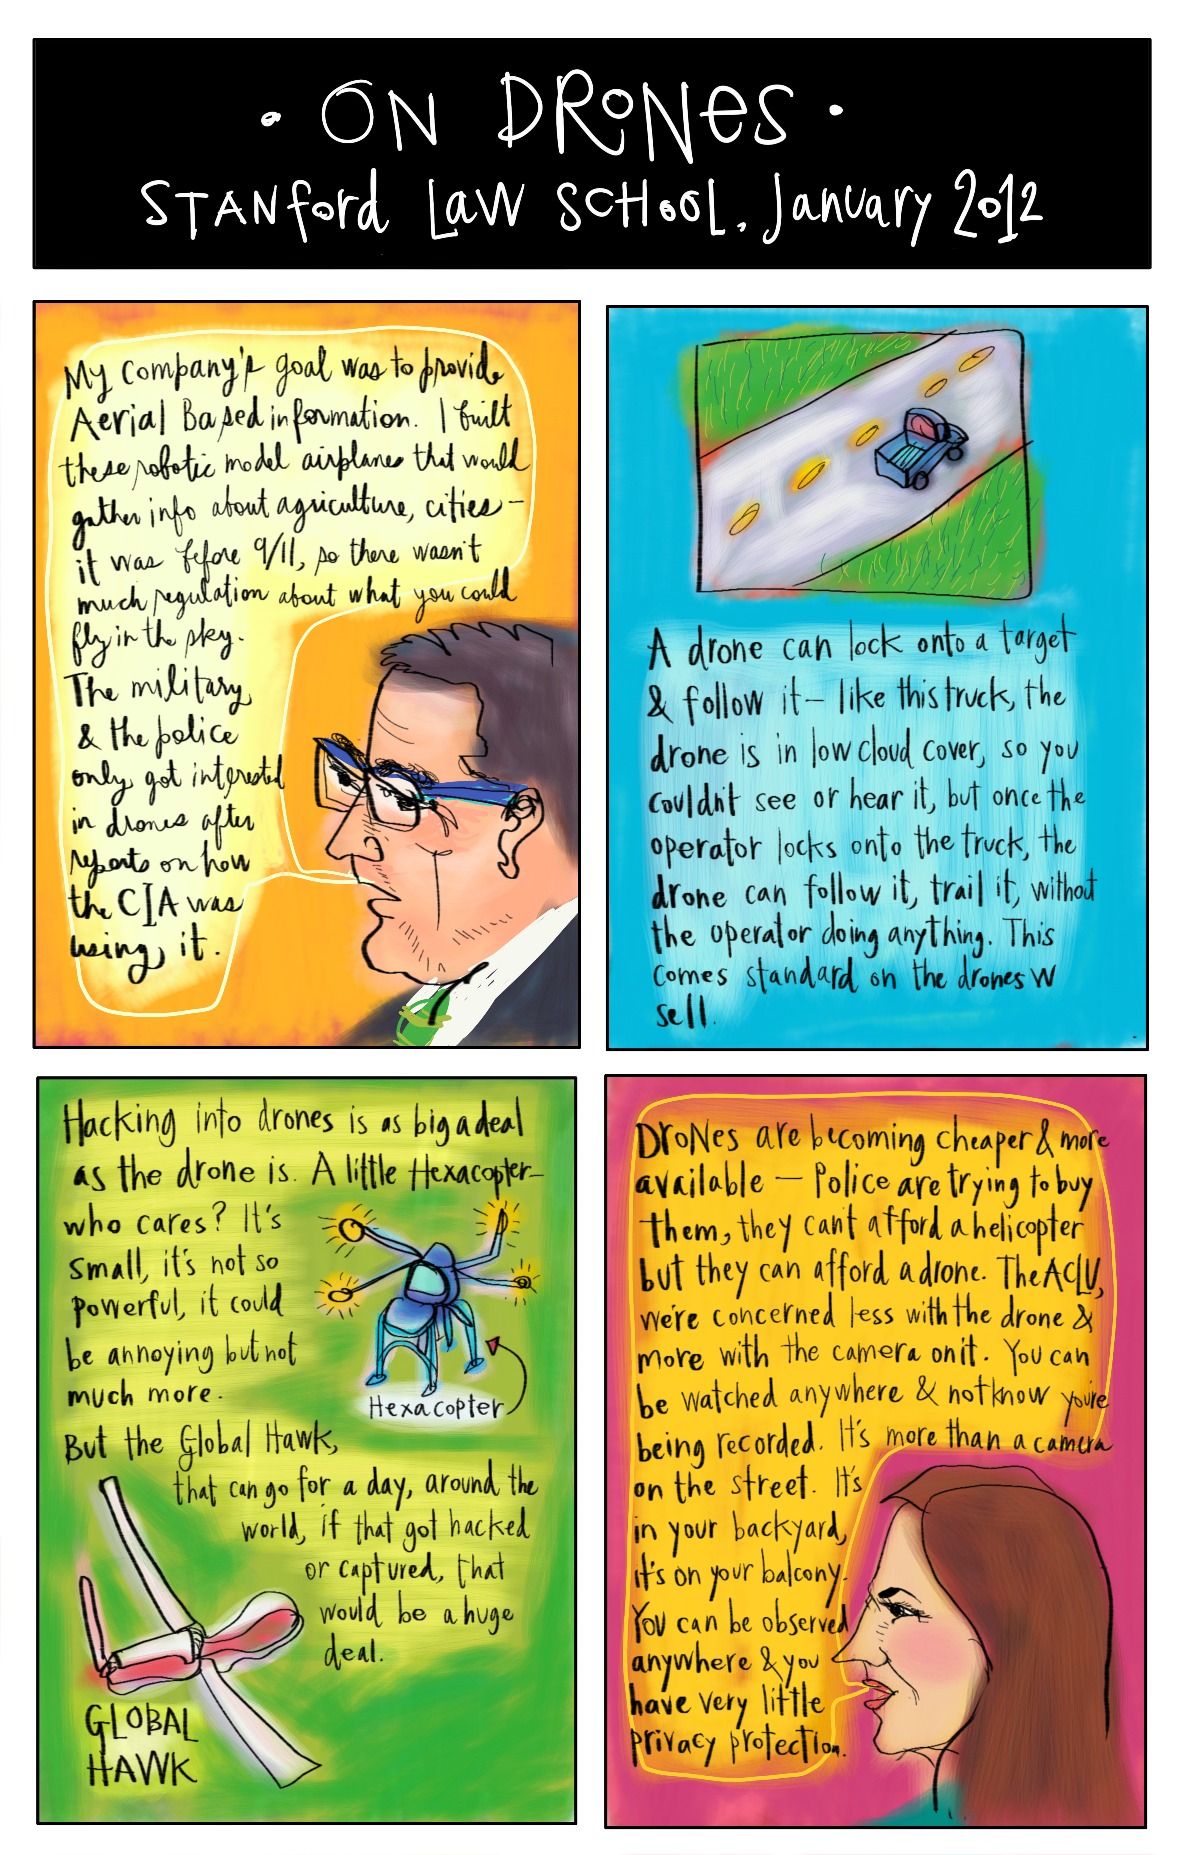 • ON DRONES •
STANford LAW SCHOOL, January 2012
My company's goal was to provide
Aerial Based information. I built
these robotic model airplanes that would
gather info about agriculture, cities –
it was before 9/11, so there wasn't
much regulation about what you could
fly in the sky.
The military
& the police
only got interested
in drones after
reports on how
the CIA was
using it.
A drone can lock onto a target
& follow it – like this truck, the
drone is in low cloud cover, so you
couldn't see or hear it, but once the
operator locks onto the truck, the
drone can follow it, trail it, without
the operator doing anything. This
comes standard on the drones W
sell.
Hacking into drones is as big a deal
as the drone is. A little Hexacopter –
who cares? It's
small, it's not so
powerful, it could
be annoying but not
much more.
Hexacopter
But the Global Hawk,
that can go for a day, around the
world, if that got hacked
or captured, that
would be a huge
deal.
GLOBAL
HAWK
DroNes are becoming cheaper & more
available – Police are trying to buy
them, they can't afford a helicopter
but they can afford a drone. The ACLU,
we're concerned less with the drone &
more with the camera on it. You can
be watched anywhere & not know you're
being recorded. It's more than a camera
on the street. It's
in your backyard,
it's on your balcony.
You can be observed
anywhere & you
have very little
privacy protection.